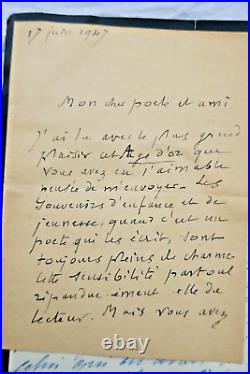 17 juin 1947
Mon cher poete et ami
J'ai lu avec le plus grand
plaisir cet Age d'or que
vous avez eu l'aimable
pensée de m'envoyer. Les
souvenirs d'enfance et de
jeunesse, quand c'est un
poete qui les écrit, sont
toujours pleins de charme
cette sensibilité partout
répandue émeut elle du
lecteur. Mais vous avez
celui